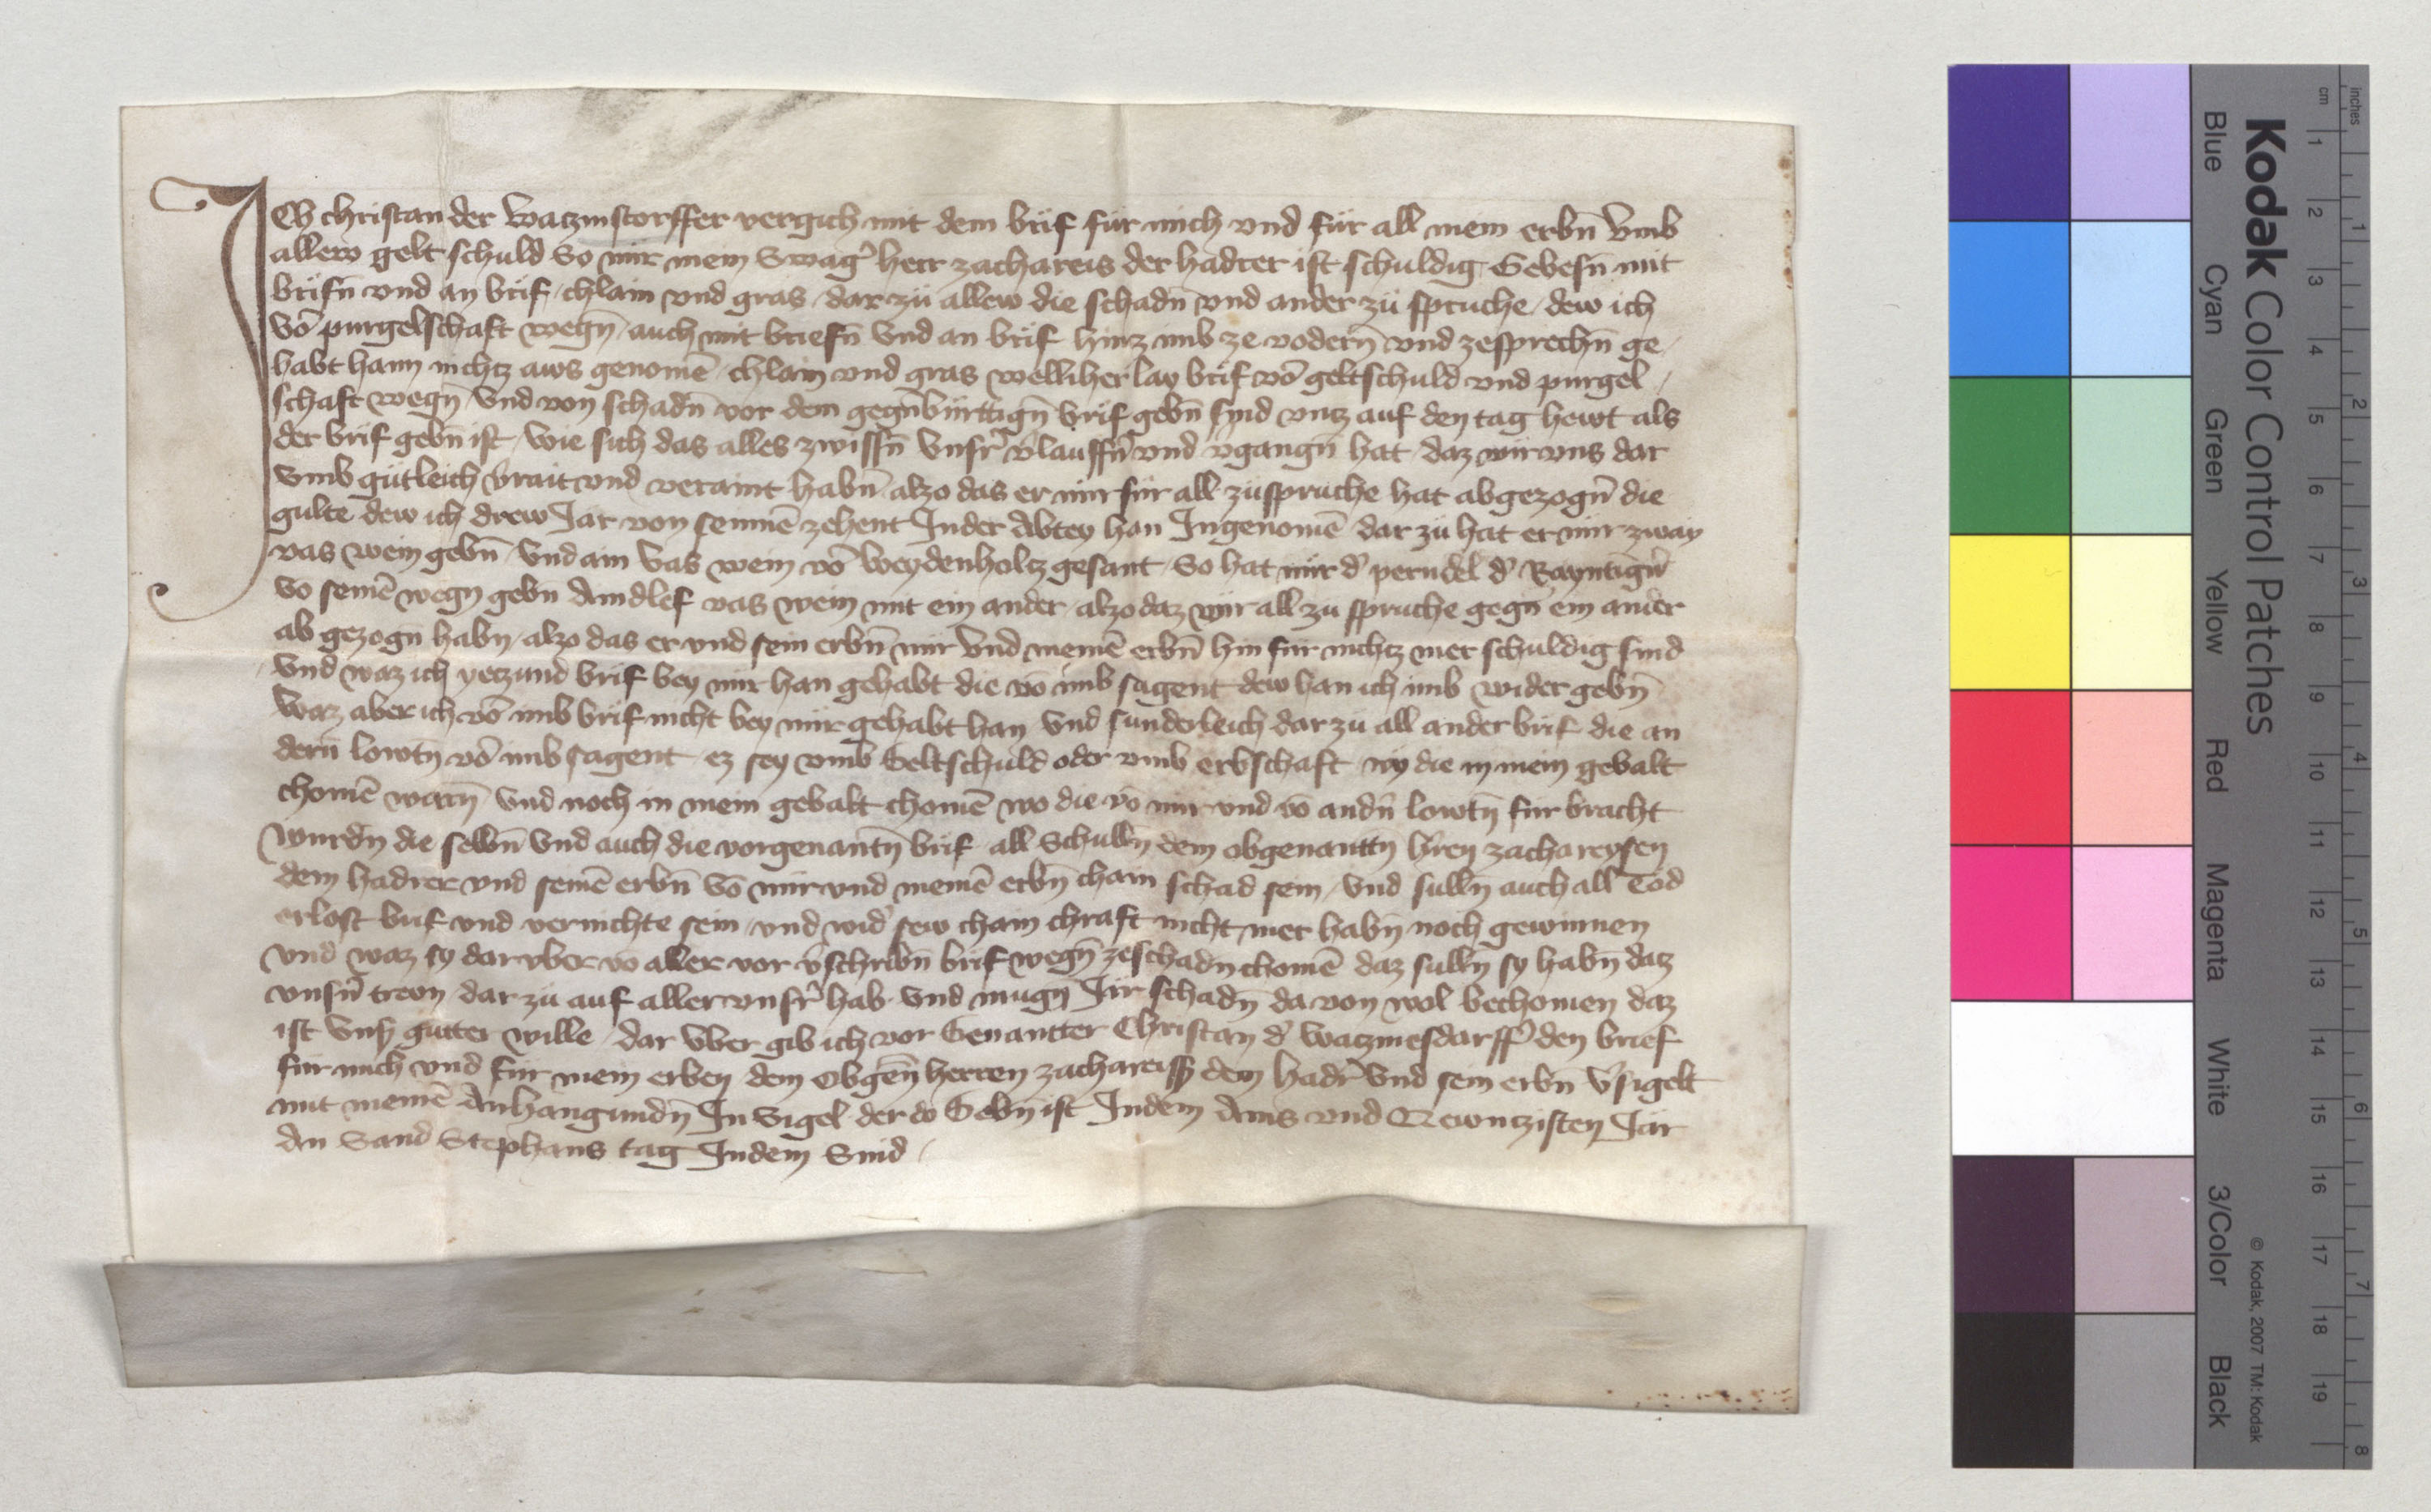 ICh christan der Watzmstorffer vergich mit dem brif für mich vnd für all mein erbn̄ Vmb
allew gelt schuld So mir mein Swag' herr zachareis der hadrer ist schuldig Gebesn̄ mit
brifn̄ vnd an brif chlain vnd gras dar zü allew die schadn̄ vnd ander zü sprüche dew ich
vō purgelschaft wegn̄ auch mit briefn̄ Vnd an brif hinz imb ze vodern̄ vnd zesprechn̄ ge
habt hann nichtz aws genomē chlain vnd gras welliher lay brif vō geltschuld vnd purgel
schaft wegn̄ Vnd von schadn̄ vor dem gegn̄bürttign̄ brif gebn̄ sind vntz auf den tag hewt als
der brif gebn̄ ist wie sich das alles zwissn̄ Vnsr' v'lauffn̄ vnd v'gangn̄ hat daz wir vns dar
Vmb gütleich v'rait vnd veraint habn̄ alzo das er mir für all züsprüche hat abgezogn̄ die
gulte dew ich drew Jar von seinnē zehent In der Abtey han Ingenomē dar zü hat er mir zway
vas wein gebn̄ Vnd ain Vas wein vō Weydenholtz gesant So hat mir d' perndel d'
vo seinē wegn gebn̄ Aindlef vas wein mit ein ander alzo daz wir all zu spruche gegn̄ ein ander
ab gezogn habn alzo das er vnd sein erbn̄ mir Vnd meinē erbn̄ hin für nichtz mer schuldig sind
Vnd waz ich yetzund brif bey mir han gehabt die vō imb sagent dew han ich imb wider gebn̄
Waz aber ich vō imb brif nicht bey mir gehabt han Vnd sunderleich dar zu all ander brif die an
dern̄ lowtn̄ vō imb sagent ez sey vmb Geltschuld oder vmb erbschaft wy die in mein gebalt
chomē warn̄ Vnd noch in mein gebalt chomē wo die vō mir vnd vō andn̄ lowtn̄ für bracht
wurdn̄ die selbn̄ Vnd auch die vorgenantn̄ brif all Schulln̄ dem obgenanttn̄ h'ren zachareysen
dem hadrer vnd seinē erbn̄ Vō mir vnd meinē erbn̄ chain schad sein Vnd sulln̄ auch all Tod
erlost brif vnd vernichte sein vnd wid' sew chain chraft nicht mer habn̄ noch gewinnen
vnd waz sy darvber vō aller vor v'schribn̄ brif wegn̄ zeschadn̄ chomē daz sulln̄ sy habn̄ datz
vnsn̄ trewn dar zu auf aller vnsr' hab Vnd mugn̄ Jr schadn̄ da von wol bechomen daz
ist Vns' gutter wille dar Vber gib ich vor Genantter Christan d' Watzmesdarff' den brief
für mich vnd für mein erben dem Obgen̄ herren zachareissen dem hadr' Vnd sein erbn̄ V'sigelt
mit meinē Anhangundn̄ In Sigel der do Gebn̄ ist In dem Ains vnd Newntzisten Jar
An Sand Stephans tag In dem Snid
Kodak Color Control Patches
Blue
Cyan
Green
Yellow
Red
Magenta
White
3/Color
Black
© Kodak, 2007 TM: Kodak
cm 1 2 3 4 5 6 7 8 9 10 11 12 13 14 15 16 17 18 19
inches 1 2 3 4 5 6 7 8